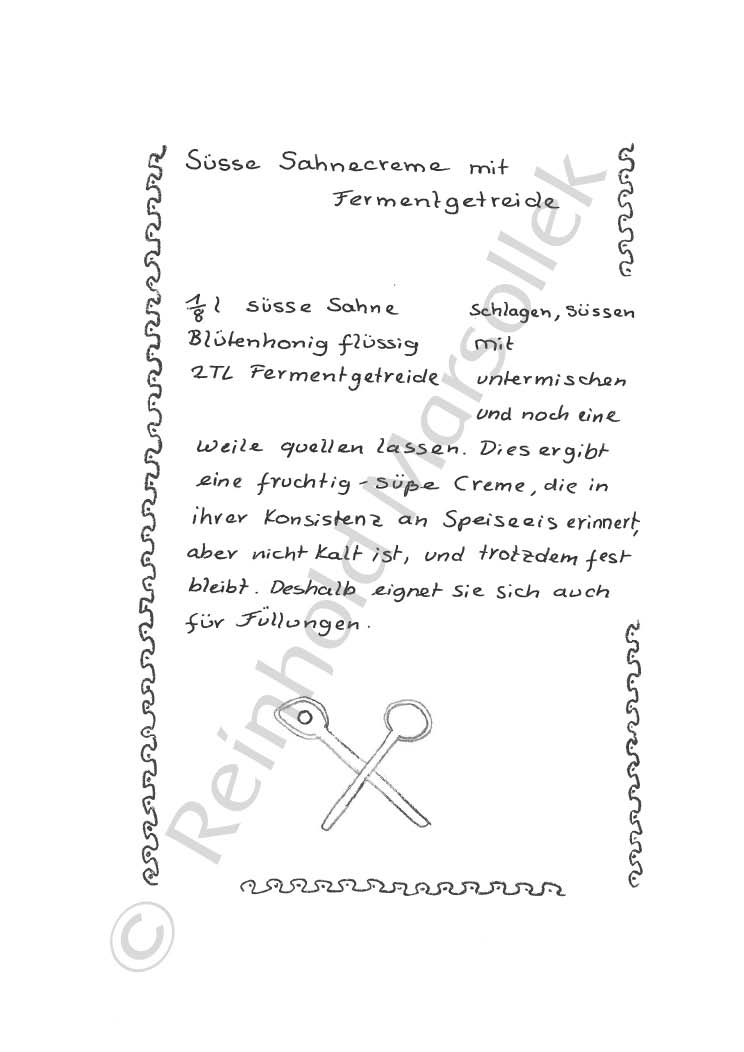 Süsse Sahnecreme mit
Fermentgetreide
1/8 l süsse Sahne schlagen, süssen
Blütenhonig flüssig mit
2TL Fermentgetreide untermischen
und noch eine
weile quellen lassen. Dies ergibt
eine fruchtig-süße Creme, die in
ihrer Konsistenz an Speiseeis erinnert,
aber nicht kalt ist, und trotzdem fest
bleibt. Deshalb eignet sie sich auch
für Füllungen.
© Reinhold Marsollek